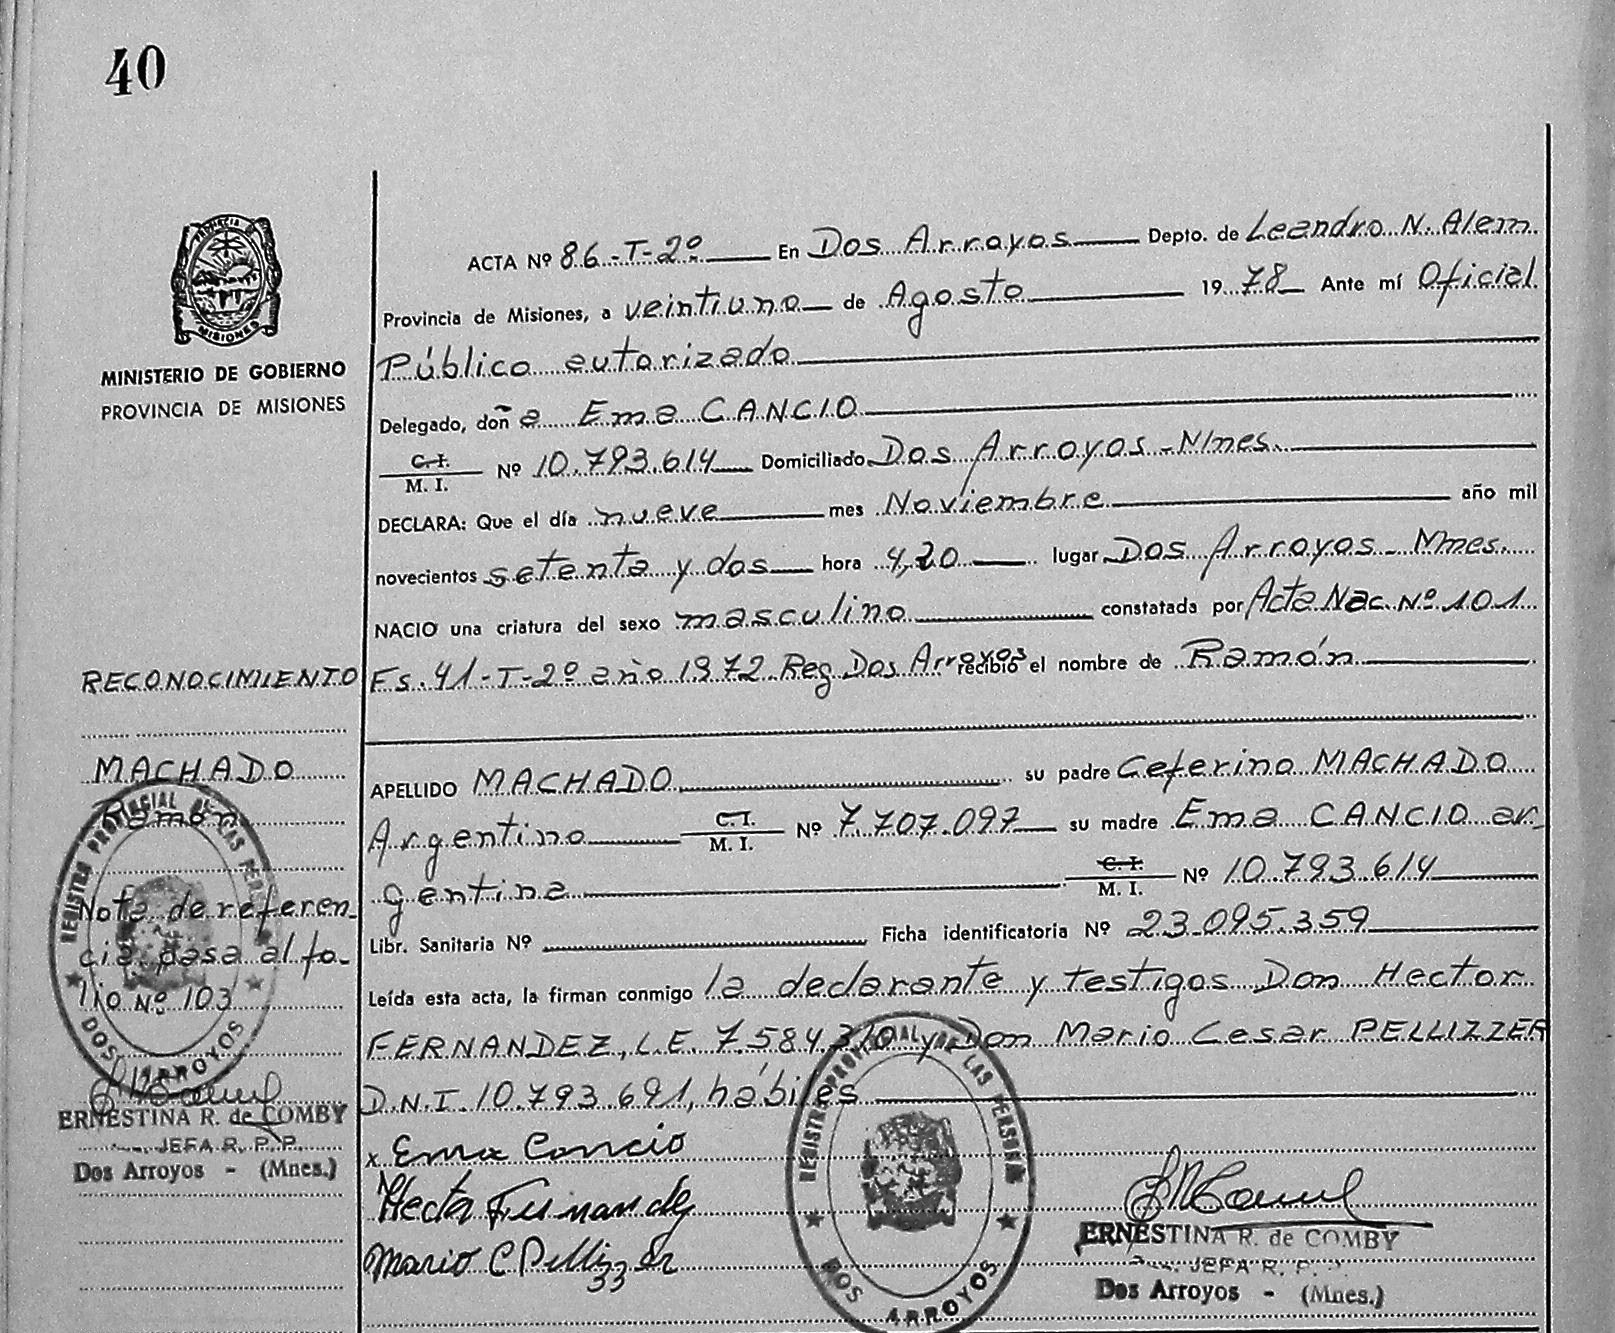 40
PROVINCIA
MISIONES
MINISTERIO DE GOBIERNO
PROVINCIA DE MISIONES
RECONOCIMIENTO
MACHADO
Ramón
Nota de referen-
cia pasa al fo-
lio Nº 103
REGISTRO PROVINCIAL DE LAS PERSONAS
DOS ARROYOS
ERNESTINA R. de COMBY
JEFA R. P. P.
Dos Arroyos - (Mnes.)
ACTA Nº 86-T-2º En Dos Arroyos Depto. de Leandro N. Alem.
Provincia de Misiones, a veintiuno de Agosto 1978 Ante mí Oficial
Público autorizado
Delegado, doña Ema CANCIO
C.I. / M. I. Nº 10.793.614 Domiciliado Dos Arroyos - Mnes.
DECLARA: Que el día nueve mes Noviembre año mil
novecientos setenta y dos hora 4,20 lugar Dos Arroyos - Mnes.
NACIO una criatura del sexo masculino constatada por Acta Nac. Nº 101
Fs. 41-T-2º año 1972 Reg. Dos Arroyos recibió el nombre de Ramón
APELLIDO MACHADO su padre Ceferino MACHADO
Argentino C.I. / M. I. Nº 7.707.097 su madre Ema CANCIO ar-
gentina C.I. / M. I. Nº 10.793.614
Libr. Sanitaria Nº Ficha identificatoria Nº 23.095.359
Leída esta acta, la firman conmigo la declarante y testigos Don Hector
FERNANDEZ, L.E. 7.584.310 y Don Mario Cesar PELLIZZER
D.N.I. 10.793.691, hábiles
x Ema Cancio
Hector Fernandez
Mario C Pellizzer
REGISTRO PROVINCIAL DE LAS PERSONAS
DOS ARROYOS
ERNESTINA R. de COMBY
JEFA R. P. P.
Dos Arroyos - (Mnes.)